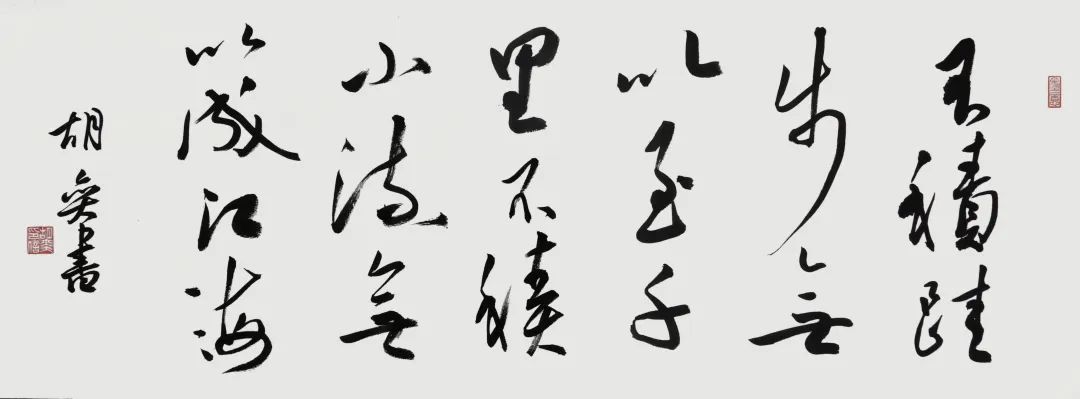 不積跬
步無
以至千
里不積
小流無
以成江海
胡書